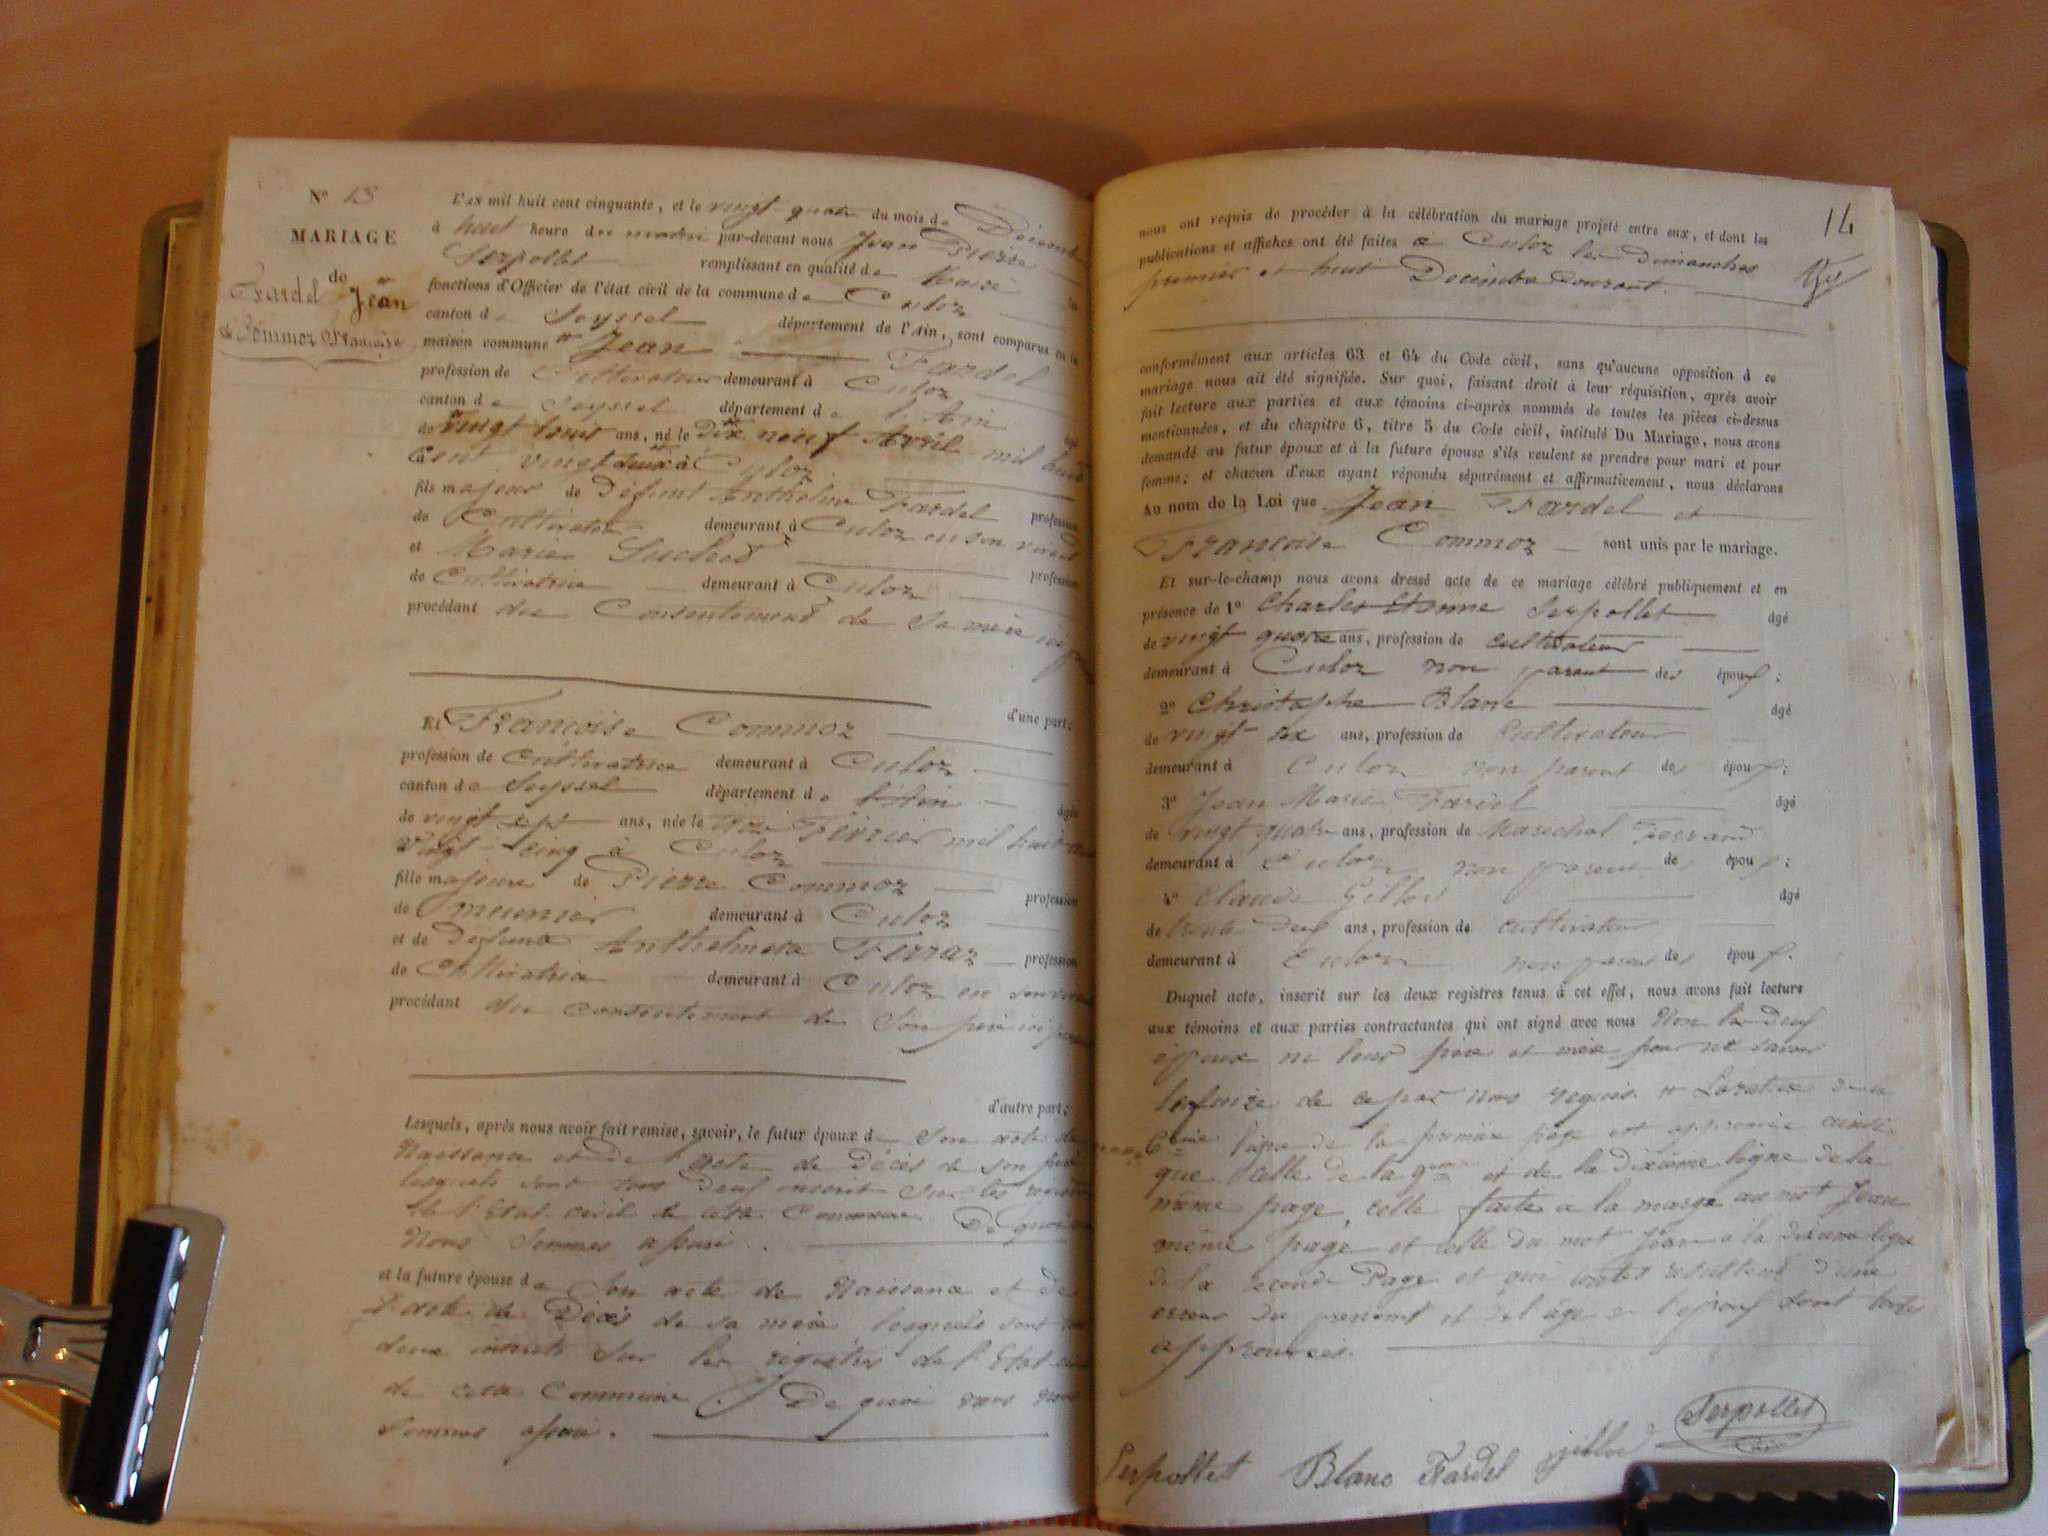 N° 13
MARIAGE
de
Fardel Jean
& Commoz Françoise
L'AN mil huit cent cinquante, et le vingt-quatre du mois de Décembre
à huit heure du matin par-devant nous Jean Pierre
Serpollet remplissant en qualité de Maire les
fonctions d'Officier de l'état civil de la commune de Culoz
canton de Seyssel département de l'Ain, sont comparus en la
maison commune Jean Fardel
profession de Cultivateur demeurant à Culoz
canton de Seyssel département de l'Ain âgé
de vingt huit ans, né le Dix neuf Avril mil huit
Cent vingt deux à Culoz
fils majeur de Défunt Anthelme Fardel profession
de Cultivateur demeurant à Culoz en son vivant
et Marie Suchet profession
de Cultivatrice demeurant à Culoz
procédant du Consentement de Sa mère ici
d'une part;
Et Françoise Commoz
profession de Cultivatrice demeurant à Culoz
canton de Seyssel département de l'Ain âgée
de vingt sept ans, née le Février mil huit cent
Vingt-cinq à Culoz
fille majeure de Pierre Commoz profession
de meunier demeurant à Culoz
et de Défunte Anthelmette Ferraz profession
de Cultivatrice demeurant à Culoz en son vivant
procédant du consentement de Son père ici
d'autre part;
Lesquels, après nous avoir fait remise, savoir, le futur époux de Son acte de
Naissance et de l'acte de Décès de son père
lesquels sont tous Deux inscrit Sur les registres
de l'Etat-civil de cette Commune De quoi
Nous Sommes assuré.
et la future épouse de Son acte de Naissance et de
l'acte de Décès de sa mère lesquels sont
deux inscrits Sur les registres de l'Etat civil
de cette Commune De quoi nous
Sommes assuré.
14
nous ont requis de procéder à la célébration du mariage projeté entre eux, et dont les
publications et affiches ont été faites à Culoz les Dimanches
premier et huit Décembre Courant.
conformément aux articles 63 et 64 du Code civil, sans qu'aucune opposition à ce
mariage nous ait été signifiée. Sur quoi, faisant droit à leur réquisition, après avoir
fait lecture aux parties et aux témoins ci-après nommés de toutes les pièces ci-dessus
mentionnées, et du chapitre 6, titre 5 du Code civil, intitulé Du Mariage, nous avons
demandé au futur époux et à la future épouse s'ils veulent se prendre pour mari et pour
femme; et chacun d'eux ayant répondu séparément et affirmativement, nous déclarons
Au nom de la Loi que Jean Fardel et
Françoise Commoz sont unis par le mariage.
Et sur-le-champ nous avons dressé acte de ce mariage célébré publiquement et en
présence de 1° Charles Serpollet âgé
de vingt quatre ans, profession de cultivateur
demeurant à Culoz non parent des époux;
2° Christophe Blanc âgé
de vingt-six ans, profession de Cultivateur
demeurant à Culoz non parent des époux;
3° Jean Marie Fardel âgé
de vingt quatre ans, profession de Maréchal Ferrand
demeurant à Culoz non parent des époux;
4° Claude Gillod âgé
de trente Deux ans, profession de cultivateur
demeurant à Culoz non parent des époux.
Duquel acte, inscrit sur les deux registres tenus à cet effet, nous avons fait lecture
aux témoins et aux parties contractantes qui ont signé avec nous Non les deux
époux ni leur père et mère pour ne savoir
le faire de ce par nous requis. La rature de la
6ème ligne de la première page est approuvée ainsi
que celle de la 9me et de la dixième ligne de la
même page, celle faite à la marge au mot Jean
même page et celle du mot Jean à la dixième ligne
de la seconde Page et qui toutes résultent d'une
erreur du prénom et de l'âge de l'époux sont toutes
approuvées.
Serpollet
Serpollet Blanc Fardel gillod